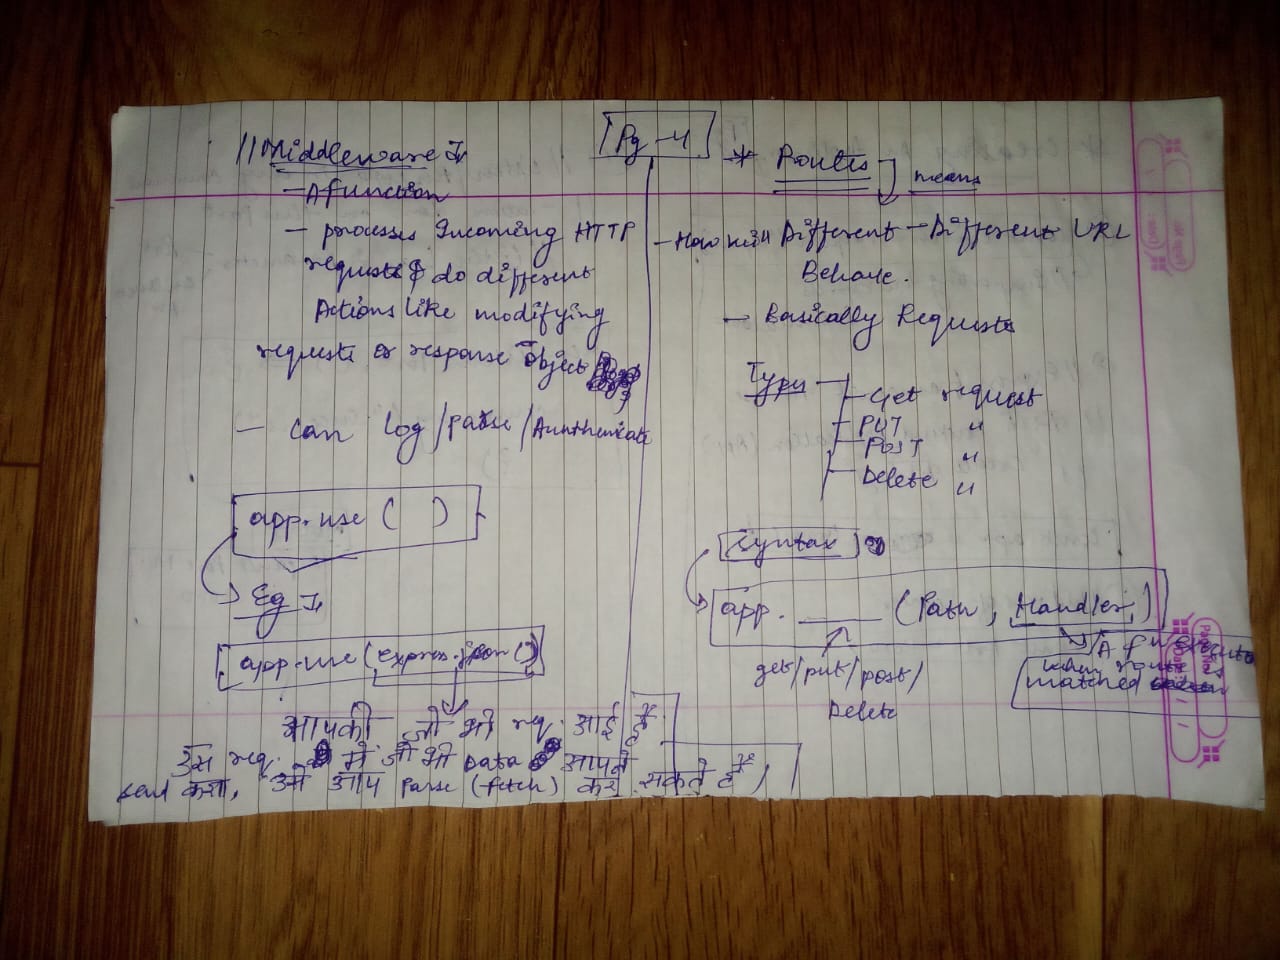 Pg-4
// Middleware :-
- A function
- processes Incoming HTTP
requests & do different
Actions like modifying
requests or response object
- Can log/parse/Authenticate
app.use( )
Eg :-
app.use(express.json())
आपकी जो भी req. आई है
उस req. में जो भी Data आपने
send करा, उसे आप Parse (fetch) कर सकते हैं,
* Routes means
- How will Different - Different URL
Behave.
- Basically Requests
Types
- Get request
- PUT "
- POST "
- Delete "
Syntax
app. ____ (Path, Handler)
get/put/post/
Delete
A fn execute
when route
matched